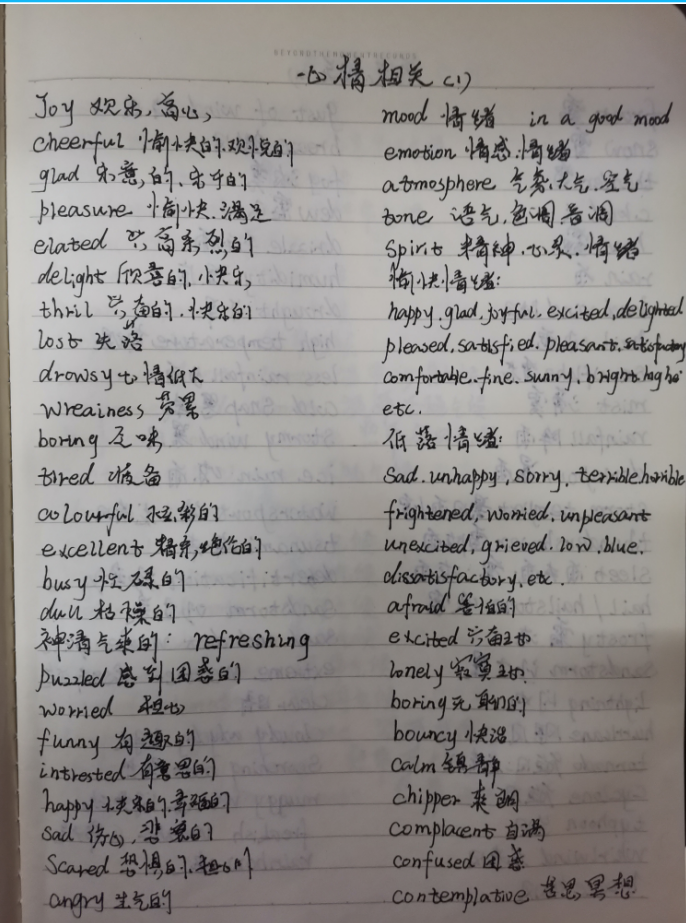 心情相关(1)
Joy 欢乐,高心,
cheerful 愉快的.欢悦的
glad 乐意,的、乐于的
pleasure 愉快.满足
elated 兴高采烈的
delight 欣喜的.快乐,
thril 兴奋的.快乐的
lost 失落
drowsy 心情低下
wreainess 劳累
boring 乏味
tired 疲备
colourful 好彩的
excellent 精采,绝伦的
busy 忙碌的
dull 枯燥的
神清气爽的: refreshing
puzzled 感到困惑的
worried 担心
funny 有趣的
intrested 有意思的
happy 快乐的.幸福的
sad 伤心,悲哀的
Scared 恐惧的.
angry 生气的
mood 情绪 in a good mood
emotion 情感.情绪
atmosphere 气氛.大气.空气
tone 语气,色调 音调
Spirit 精神.心灵.情绪
愉快情绪:
happy.glad.joyful.excited,delighted
pleased,satisfied.pleasant.satisfactory
comfortable.fine.sunny,bright.high
etc.
低落情绪:
sad.unhappy,sorry,terrible.horrible
frightened,worried.unpleasant
unexcited,grieved.low.blue.
dissatisfactory,etc.
afraid 害怕的
excited 兴奋地
lonely 寂寞地
boring 无聊的
bouncy 快活
calm 镇静
chipper 爽朗
complacent 自满
confused 困惑
contemplative 苦思冥想